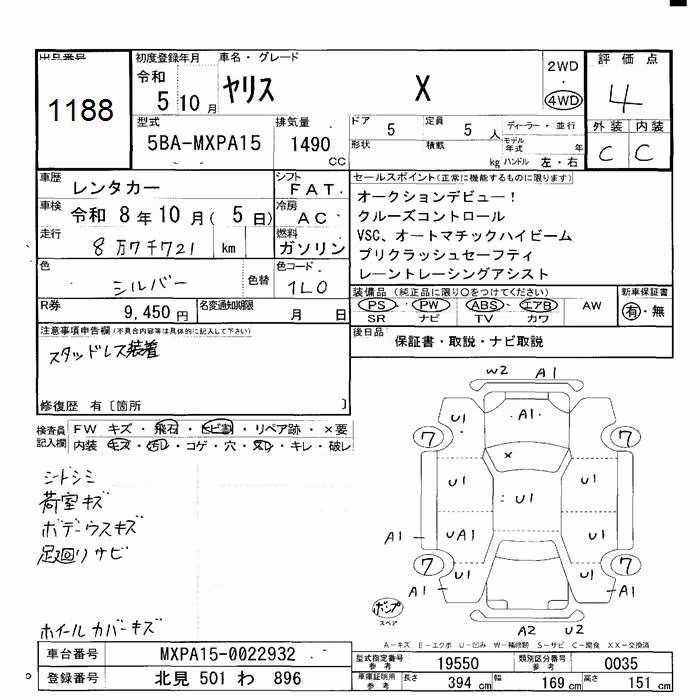 出品番号
1188
初度登録年月
令和
5 10 月
車名・グレード
ヤリス X
2WD
・
4WD
評価点
4
外装 内装
C C
型式
5BA-MXPA15
排気量
1490
CC
ドア 5
定員 5 人
形状 積載 kg
ディーラー・並行
モデル年式 年
ハンドル 左・右
車歴
レンタカー
シフト
F AT
車検
令和 8 年 10 月 ( 5 日)
冷房
AC
走行
8万7千721 km
燃料
ガソリン
色
シルバー
色替
色コード
1L0
R券
9,450 円
名変通知期限
月 日
セールスポイント(正常に機能するものに限ります)
オークションデビュー!
クルーズコントロール
VSC、オートマチックハイビーム
プリクラッシュセーフティ
レーントレーシングアシスト
装備品 (純正品に限り〇をつけてください)
PS PW ABS エアB AW
SR ナビ TV カワ
新車保証書
有・無
後日品
保証書・取説・ナビ取説
注意事項申告欄(不具合内容等は具体的に記入して下さい)
スタッドレス装着
修復歴 有〔箇所 〕
検査員
記入欄
FW キズ・飛石・ヒビ割・リペア跡・×要
内装・キズ・汚レ・コゲ・穴・スレ・キレ・破レ
シートシミ
荷室キズ
ボデーウスキズ
足廻りサビ
ホイールカバーキズ
W2 A1
U1 A1
7 7
×
U1 U1 U1
A1 UA1 U1
7 7
U1 U1
A1 A1
A2 U2
スペア
A-キズ E-エクボ U-凹み W-補修跡 S-サビ C-腐食 XX-交換済
車台番号
MXPA15-0022932
登録番号
北見 501 わ 896
型式指定番号
参考
19550
類別区分番号
参考
0035
車庫証明用
参考
長さ 394 cm
幅 169 cm
高さ 151 cm